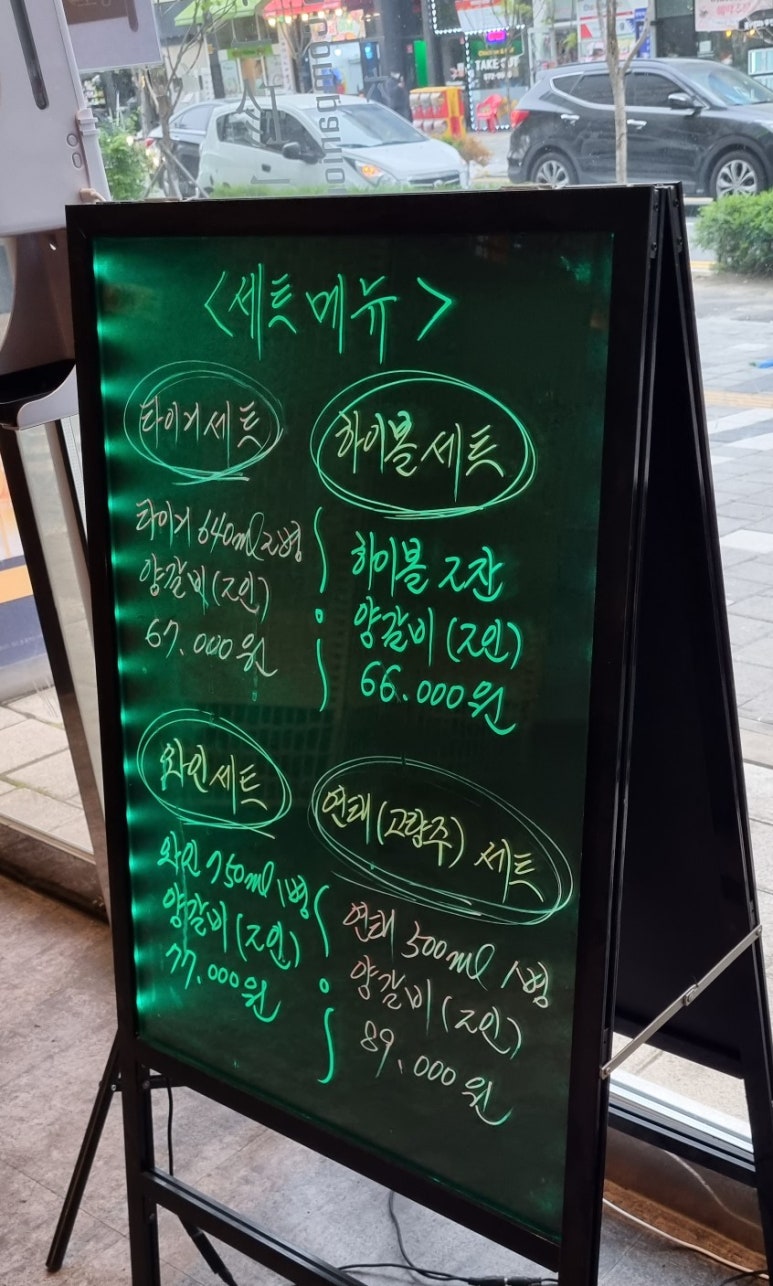 <세트메뉴>
타이거세트
타이거 640ml 2병
양갈비(2인)
67.000원
하이볼세트
하이볼 2잔
양갈비(2인)
66.000원
와인세트
와인 750ml 1병
양갈비(2인)
77.000원
연태(고량주) 세트
연태 500ml 1병
양갈비(2인)
89.000원
TAKE OUT